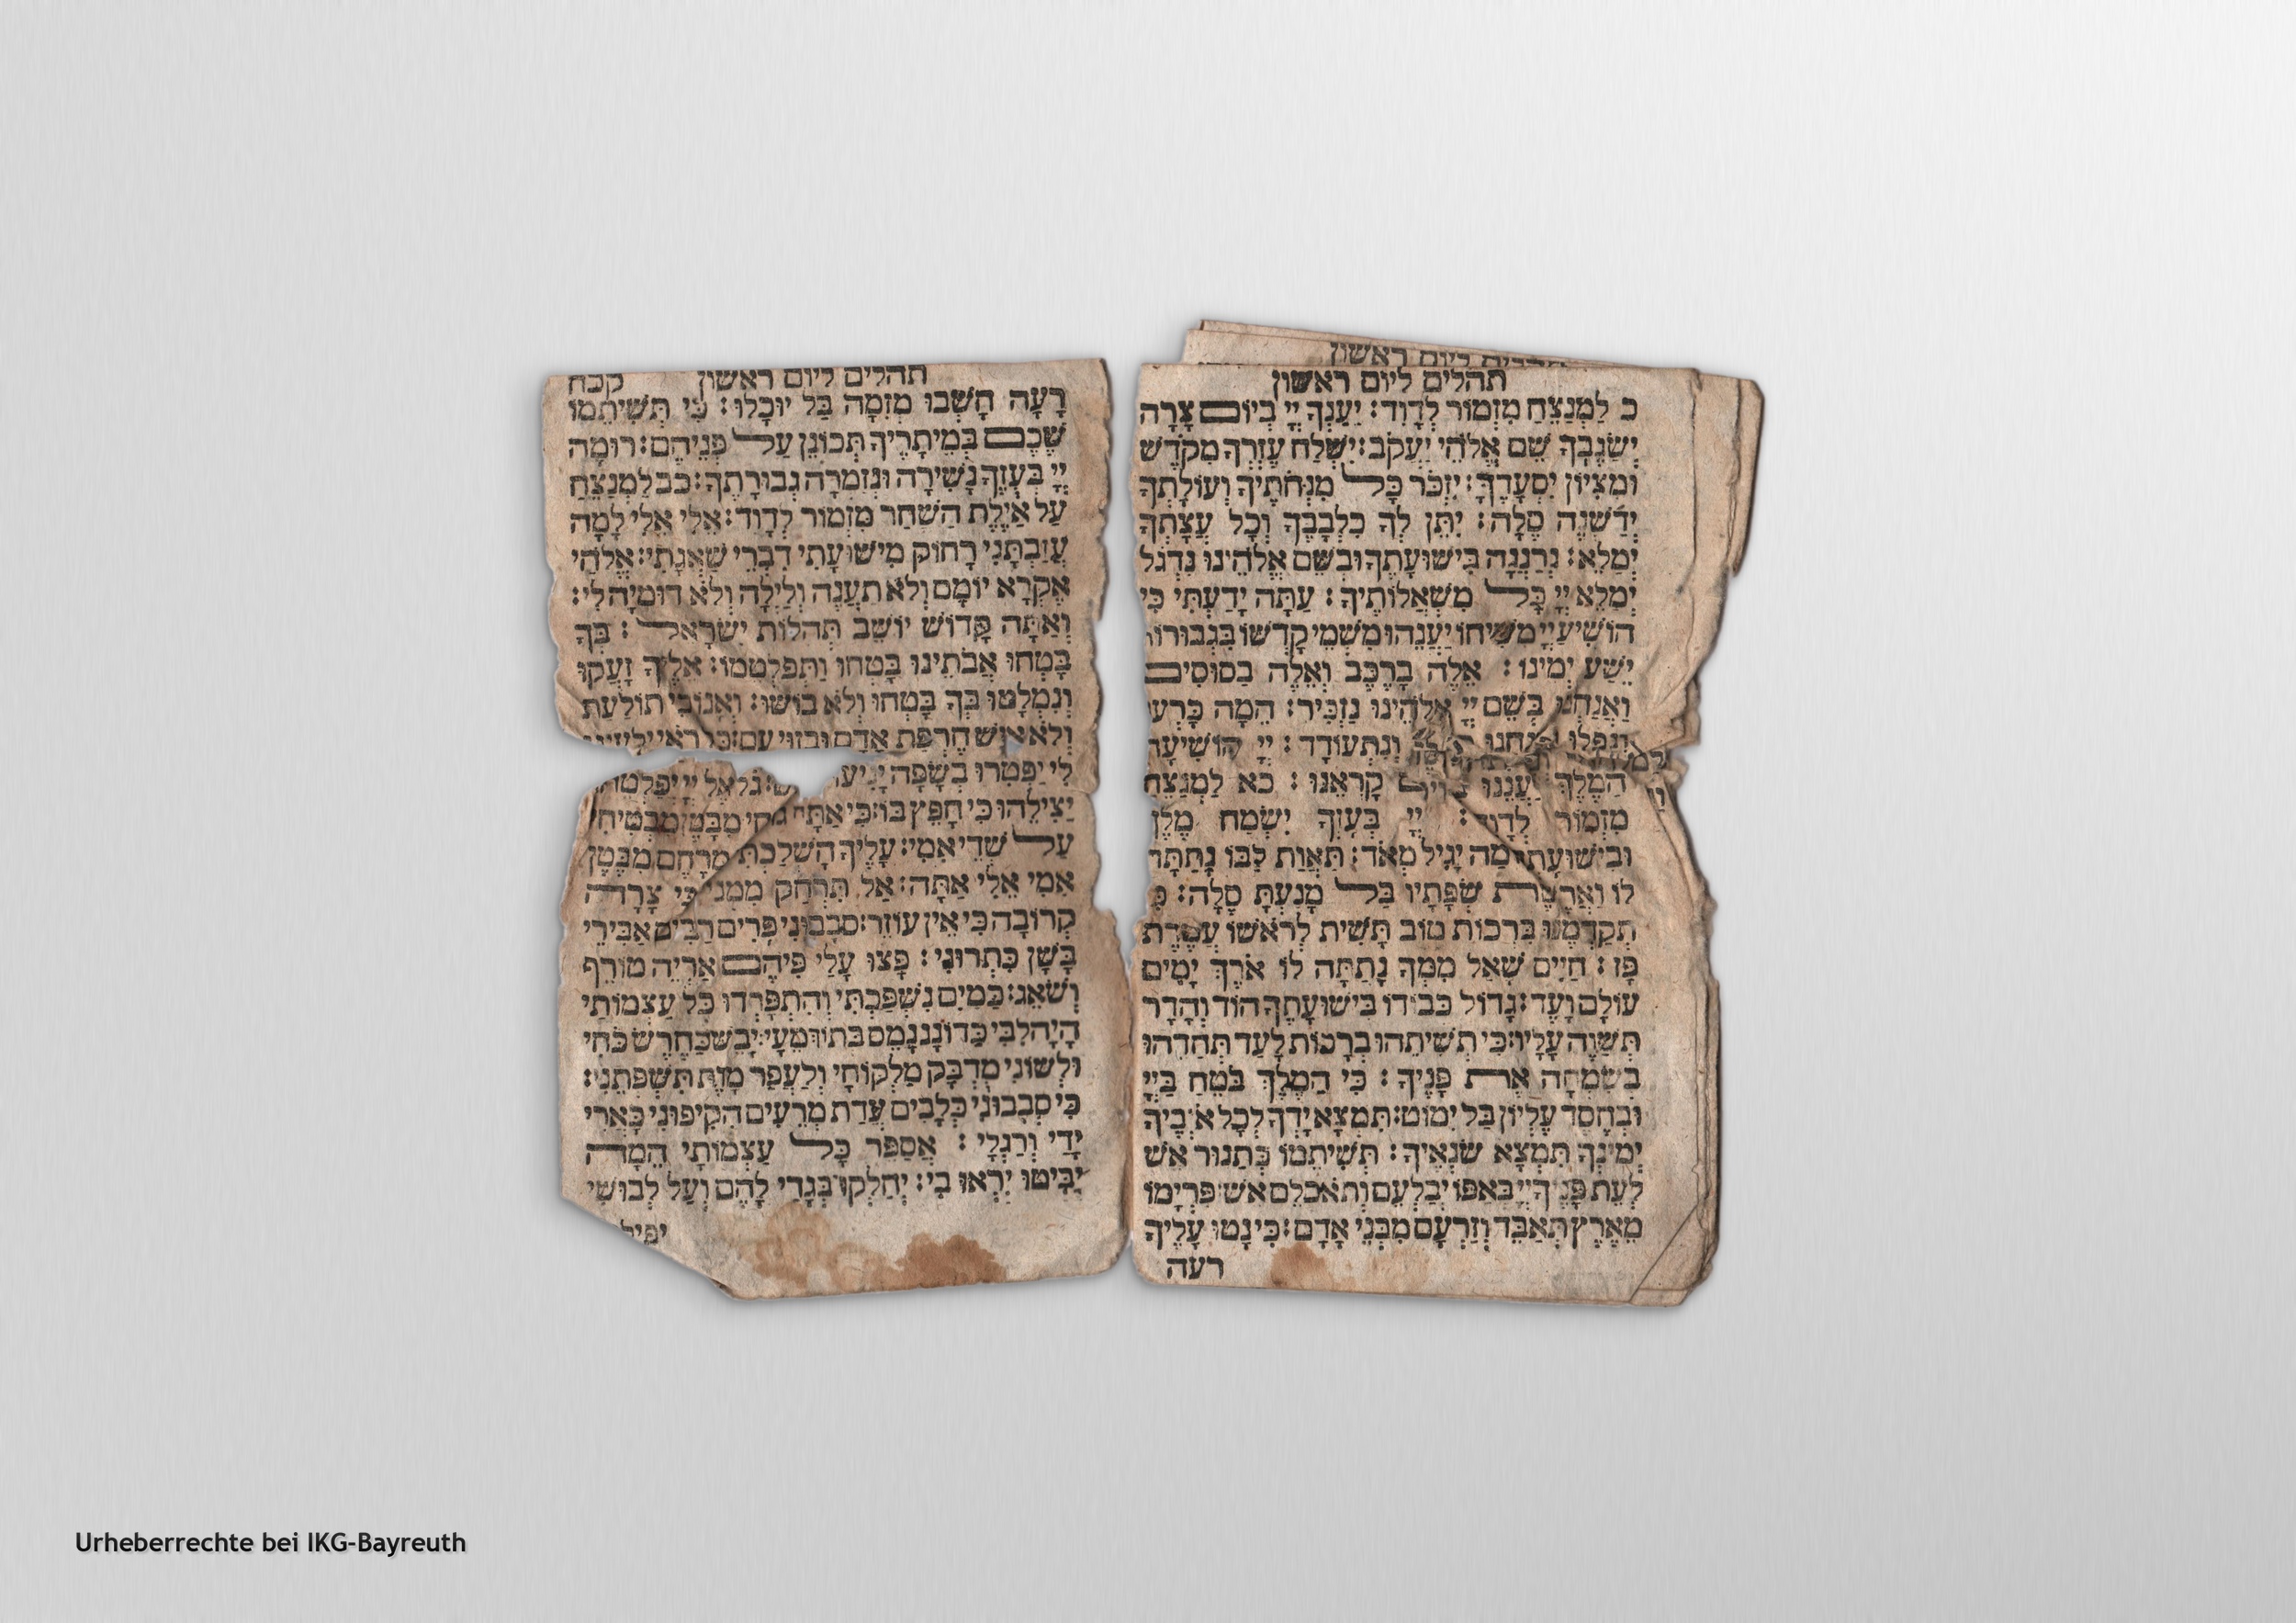 תהלים ליום ראשון
תהלים ליום ראשון
כ לַמְנַצֵּחַ מִזְמוֹר לְדָוִד: יַעַנְךָ יְיָ בְּיוֹם צָרָה
יְשַׂגֶּבְךָ שֵׁם אֱלֹהֵי יַעֲקֹב: יִשְׁלַח עֶזְרְךָ מִקֹּדֶשׁ
וּמִצִּיּוֹן יִסְעָדֶךָּ: יִזְכֹּר כָּל מִנְחֹתֶיךָ וְעוֹלָתְךָ
יְדַשְּׁנֶה סֶלָה: יִתֶּן לְךָ כִלְבָבֶךָ וְכָל עֲצָתְךָ
יְמַלֵּא: נְרַנְּנָה בִּישׁוּעָתֶךָ וּבְשֵׁם אֱלֹהֵינוּ נִדְגֹּל
יְמַלֵּא יְיָ כָּל מִשְׁאֲלוֹתֶיךָ: עַתָּה יָדַעְתִּי כִּי
הוֹשִׁיעַ יְיָ מְשִׁיחוֹ יַעֲנֵהוּ מִשְּׁמֵי קָדְשׁוֹ בִּגְבוּרוֹת
יֵשַׁע יְמִינוֹ: אֵלֶּה בָרֶכֶב וְאֵלֶּה בַסּוּסִים
וַאֲנַחְנוּ בְּשֵׁם יְיָ אֱלֹהֵינוּ נַזְכִּיר: הֵמָּה כָּרְעוּ
וְנָפָלוּ וַאֲנַחְנוּ וַנִּתְעוֹדָד: יְיָ הוֹשִׁיעָה
הַמֶּלֶךְ יַעֲנֵנוּ קָרְאֵנוּ: כא לַמְנַצֵּחַ
מִזְמוֹר לְדָוִד: יְיָ בְּעָזְּךָ יִשְׂמַח מֶלֶךְ
וּבִישׁוּעָתְךָ מַה יָגֵיל מְאֹד: תַּאֲוַת לִבּוֹ נָתַתָּה
לּוֹ וַאֲרֶשֶׁת שְׂפָתָיו בַּל מָנַעְתָּ סֶּלָה: כִּי
תְקַדְּמֶנּוּ בִּרְכוֹת טוֹב תָּשִׁית לְרֹאשׁוֹ עֲטֶרֶת
פָּז: חַיִּים שָׁאַל מִמְּךָ נָתַתָּה לּוֹ אֹרֶךְ יָמִים
עוֹלָם וָעֶד: גָּדוֹל כְּבוֹדוֹ בִּישׁוּעָתֶךָ הוֹד וְהָדָר
תְּשַׁוֶּה עָלָיו: כִּי תְשִׁיתֵהוּ בְרָכוֹת לָעַד תְּחַדֵּהוּ
בְשִׂמְחָה אֶת פָּנֶיךָ: כִּי הַמֶּלֶךְ בֹּטֵחַ בַּיְיָ
וּבְחֶסֶד עֶלְיוֹן בַּל יִמּוֹט: תִּמְצָא יָדְךָ לְכָל אֹיְבֶיךָ
יְמִינְךָ תִּמְצָא שֹׂנְאֶיךָ: תְּשִׁיתֵמוֹ כְּתַנּוּר אֵשׁ
לְעֵת פָּנֶיךָ יְיָ בְּאַפּוֹ יְבַלְּעֵם וְתֹאכְלֵם אֵשׁ: פִּרְיָמוֹ
מֵאֶרֶץ תְּאַבֵּד וְזַרְעָם מִבְּנֵי אָדָם: כִּי נָטוּ עָלֶיךָ
רעה
תהלים ליום ראשון קכח
רָעָה חָשְׁבוּ מְזִמָּה בַּל יוּכָלוּ: כִּי תְּשִׁיתֵמוֹ
שֶׁכֶם בְּמֵיתָרֶיךָ תְּכוֹנֵן עַל פְּנֵיהֶם: רוּמָה
יְיָ בְּעֻזֶּךָ נָשִׁירָה וּנְזַמְּרָה גְּבוּרָתֶךָ: כב לַמְנַצֵּחַ
עַל אַיֶּלֶת הַשַּׁחַר מִזְמוֹר לְדָוִד: אֵלִי אֵלִי לָמָה
עֲזַבְתָּנִי רָחוֹק מִישׁוּעָתִי דִּבְרֵי שַׁאֲגָתִי: אֱלֹהַי
אֶקְרָא יוֹמָם וְלֹא תַעֲנֶה וְלַיְלָה וְלֹא דוּמִיָּה לִי:
וְאַתָּה קָדוֹשׁ יוֹשֵׁב תְּהִלּוֹת יִשְׂרָאֵל: בְּךָ
בָּטְחוּ אֲבֹתֵינוּ בָּטְחוּ וַתְּפַלְּטֵמוֹ: אֵלֶיךָ זָעֲקוּ
וְנִמְלָטוּ בְּךָ בָטְחוּ וְלֹא בוֹשׁוּ: וְאָנוֹכִי תוֹלַעַת
וְלֹא אִישׁ חֶרְפַּת אָדָם וּבְזוּי עָם: כָּל רֹאַי
לִי יַפְטִירוּ בְשָׂפָה יָנִיעוּ גֹּל אֶל יְיָ יְפַלְּטֵהוּ
יַצִּילֵהוּ כִּי חָפֵץ בּוֹ: כִּי אַתָּה גֹחִי מִבָּטֶן מַבְטִיחִי
עַל שְׁדֵי אִמִּי: עָלֶיךָ הָשְׁלַכְתִּי מֵרָחֶם מִבֶּטֶן
אִמִּי אֵלִי אָתָּה: אַל תִּרְחַק מִמֶּנִּי כִּי צָרָה
קְרוֹבָה כִּי אֵין עוֹזֵר: סְבָבוּנִי פָּרִים רַבִּים אַבִּירֵי
בָשָׁן כִּתְּרוּנִי: פָּצוּ עָלַי פִּיהֶם אַרְיֵה טוֹרֵף
וְשֹׁאֵג: כַּמַּיִם נִשְׁפַּכְתִּי וְהִתְפָּרְדוּ כָּל עַצְמוֹתָי
הָיָה לִבִּי כַּדּוֹנָג נָמֵס בְּתוֹךְ מֵעָי: יָבֵשׁ כַּחֶרֶשׂ כֹּחִי
וּלְשׁוֹנִי מֻדְבָּק מַלְקוֹחָי וְלַעֲפַר מָוֶת תִּשְׁפְּתֵנִי:
כִּי סְבָבוּנִי כְּלָבִים עֲדַת מְרֵעִים הִקִּיפוּנִי כָּאֲרִי
יָדַי וְרַגְלָי: אֲסַפֵּר כָּל עַצְמוֹתָי הֵמָּה
יַבִּיטוּ יִרְאוּ בִי: יְחַלְּקוּ בְגָדַי לָהֶם וְעַל לְבוּשִׁי
Urheberrechte bei IKG-Bayreuth